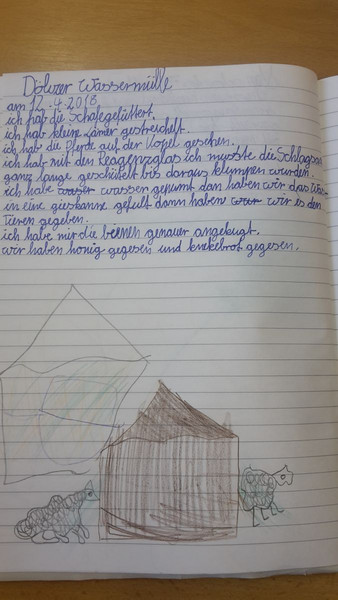 Dölzer Wassermülle
am 12.4.2018
ich hab die Schafegefüttert.
ich hab kleine Lämer gestreichelt.
ich hab die Pferde auf der Kopel gesehen.
ich hab mit den Reagenzglas ich musste die Schlagsan
ganz lange geschütelt bis daraus klumpen wurden.
ich habe wasser gepumt dan haben wir das
in eine gieskanne gefült dann haben wir es den
Tieren gegeben.
ich habe mir die bienen genauer angekugt.
wir haben honig gegesen und knekebrot gegesen.